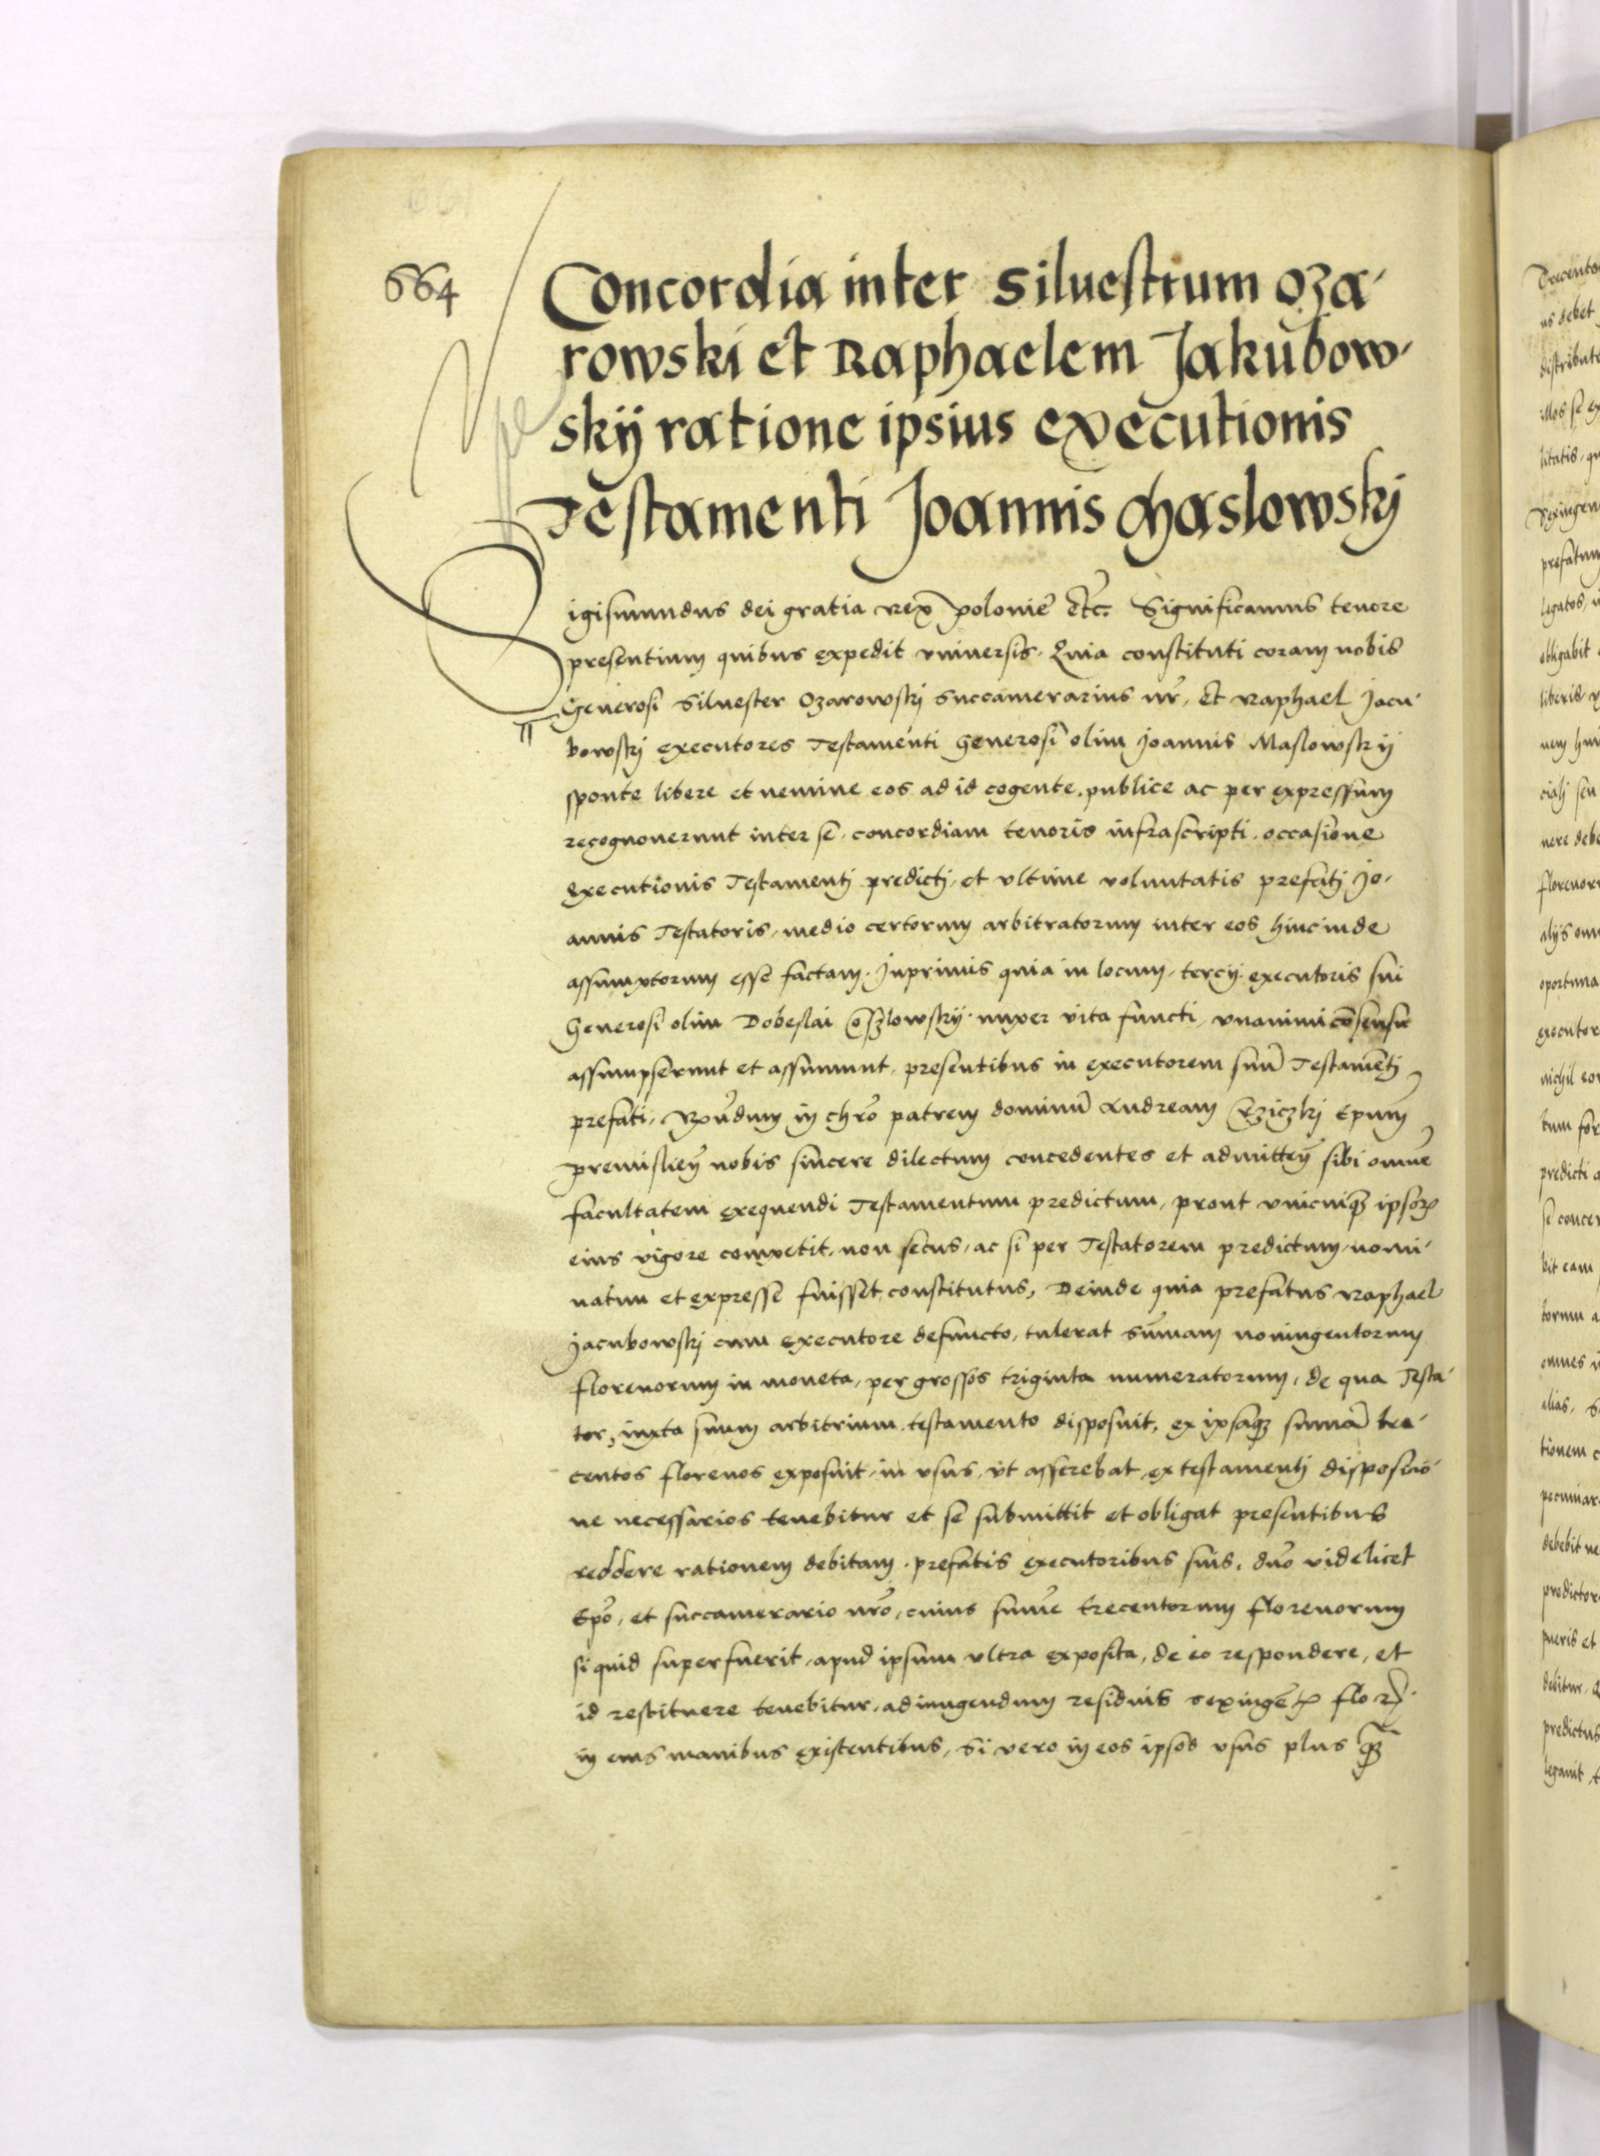 664
Concordia inter Siluestrum Oza-
rowski et Raphaelem Jakubow-
skij ratione ipsius executionis
Testamenti Joannis Maslowskj
Sigismundus dei gratia Rex polonie etc. Significamus tenore
presentium quibus expedit vniuersis. Quia constituti coram nobis
Generosi Siluester Ozarowskj Succamerarius nr̃, Et Raphael Jacu-
bowskj executores Testamenti Generosi olim Joannis Maslowskij
sponte libere et nemine eos ad id cogente. publice ac per expressum
recognouerunt inter se. concordiam tenoris infrascripti. occasione
Executionis Testamentj predictj. et vltime voluntatis prefatj Jo-
annis Testatoris, medio certorum arbitratorum inter eos hincinde
assumptorum esse factam. Inprimis quia in locum, tercij executoris sui
Generosi olim Dobeslai nuper vita functi, vnanimi cõsensu
assumpserunt et assumunt, presentibus in executorem suũ Testamẽtj
prefati, Rẽudum in chrõ patrem dominũ Andream Krziczkj Epum̃
premislieñ nobis sincere dilectum concedentes et admitteñ sibi omnẽ
facultatem exequendi Testamentum predictum, prout vnicuiqз ipsoꝝ
eius vigore competit, non secus, ac si per Testatorem predictum nomi-
natim et expresse fuisset constitutus, Deinde quia prefatus Raphael
Jacubowskj cum executore defuncto, tulerat Sũmam noningentorum
florenorum in moneta, per grossos triginta numeratorum, de qua Testa-
tor, iuxta suum arbitrium testamento disposuit, ex ipsaqз summã tre-
centos florenos exposuit, in vsus, vt asserebat ex testamentj disposicio-
ne necessarios tenebitur et se submittit et obligat presentibus
reddere rationem debitam. prefatis executoribus suis, dño videlicet
Epõ, et succamerario nrõ, cuius sum̃e trecentorum florenorum
si quid superfuerit, apud ipsum vltra exposita, de eo respondere, et
id restituere tenebitur, adiungendum residuis sexingẽtꝝ floꝝ
in eius manibus existentibus, Si vero in eos ipsos vsus plus qз̃